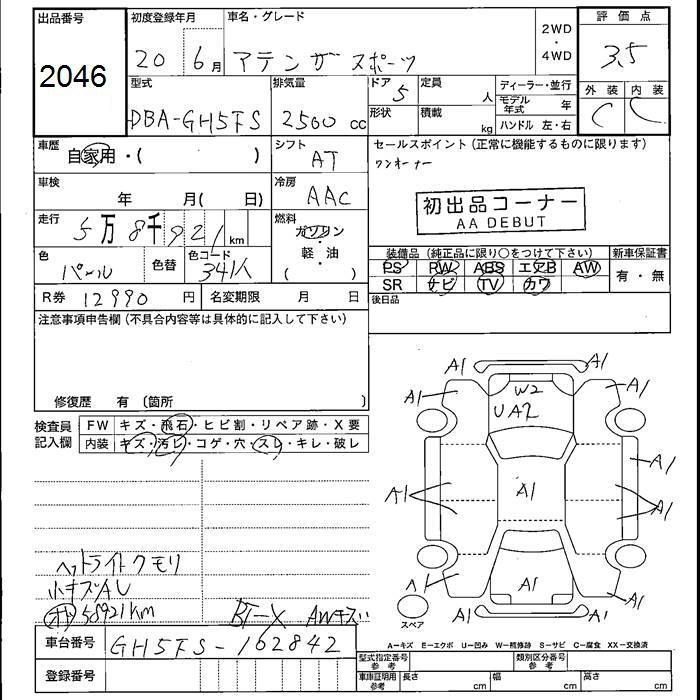 出品番号
2046
初度登録年月
20 6月
車名・グレード
アテンザスポーツ
2WD
・
4WD
評価点
3.5
型式
DBA-GH5FS
排気量
2500 cc
ドア 5
形状
定員 人
積載 kg
ディーラー・並行
モデル年式 年
ハンドル 左・右
外装 内装
C C
車歴
自家用・( )
シフト
AT
セールスポイント(正常に機能するものに限ります)
ワンオーナー
車検
年 月( 日)
冷房
AAC
初出品コーナー
AA DEBUT
走行
5万8千921km
燃料
ガソリン
・
軽・油
( )
色
パール
色替
色コード
34K
装備品(純正品に限り○をつけて下さい)
新車保証書
PS RW ABS エアB AW
SR ナビ TV カワ
有・無
R券 12990円
名変期限 月 日
後日品
注意事項申告欄(不具合内容等は具体的に記入して下さい)
修復歴 有(箇所 )
検査員記入欄
FW キズ・飛石・ヒビ割・リペア跡・X要
内装 キズ・汚レ・コゲ・穴・スレ・キレ・破レ
ヘッドライトクモリ
小キズAU
58921km
AWキズ
車台番号
GH5FS-162842
登録番号
A1 A1
A1 A1
W2
UA2
A1
A1
A1
A1
A1
A1 A1
スペア
A-キズ E-エクボ U-凹み W-補修跡 S-サビ C-腐食 XX-交換済
型式指定番号 参考
類別区分番号 参考
車庫証明用 参考
長さ cm
幅 cm
高さ cm